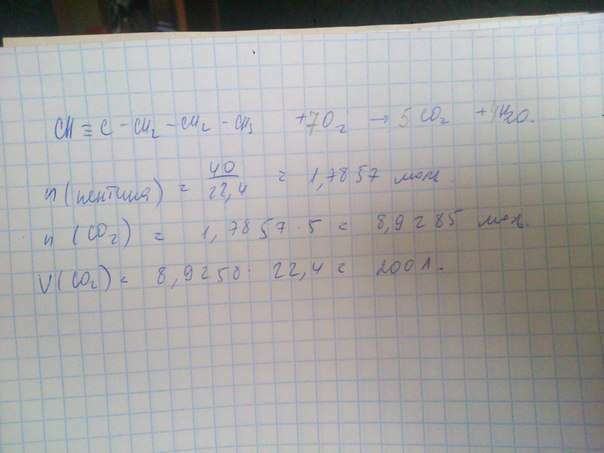 CH ≡ C - CH₂ - CH₂ - CH₃ + 7O₂ → 5CO₂ + 4H₂O.
n (пентина) = 40/22,4 = 1,7857 моль.
n (CO₂) = 1,7857 · 5 = 8,9285 моль.
V(CO₂) = 8,9250 · 22,4 = 200 л.